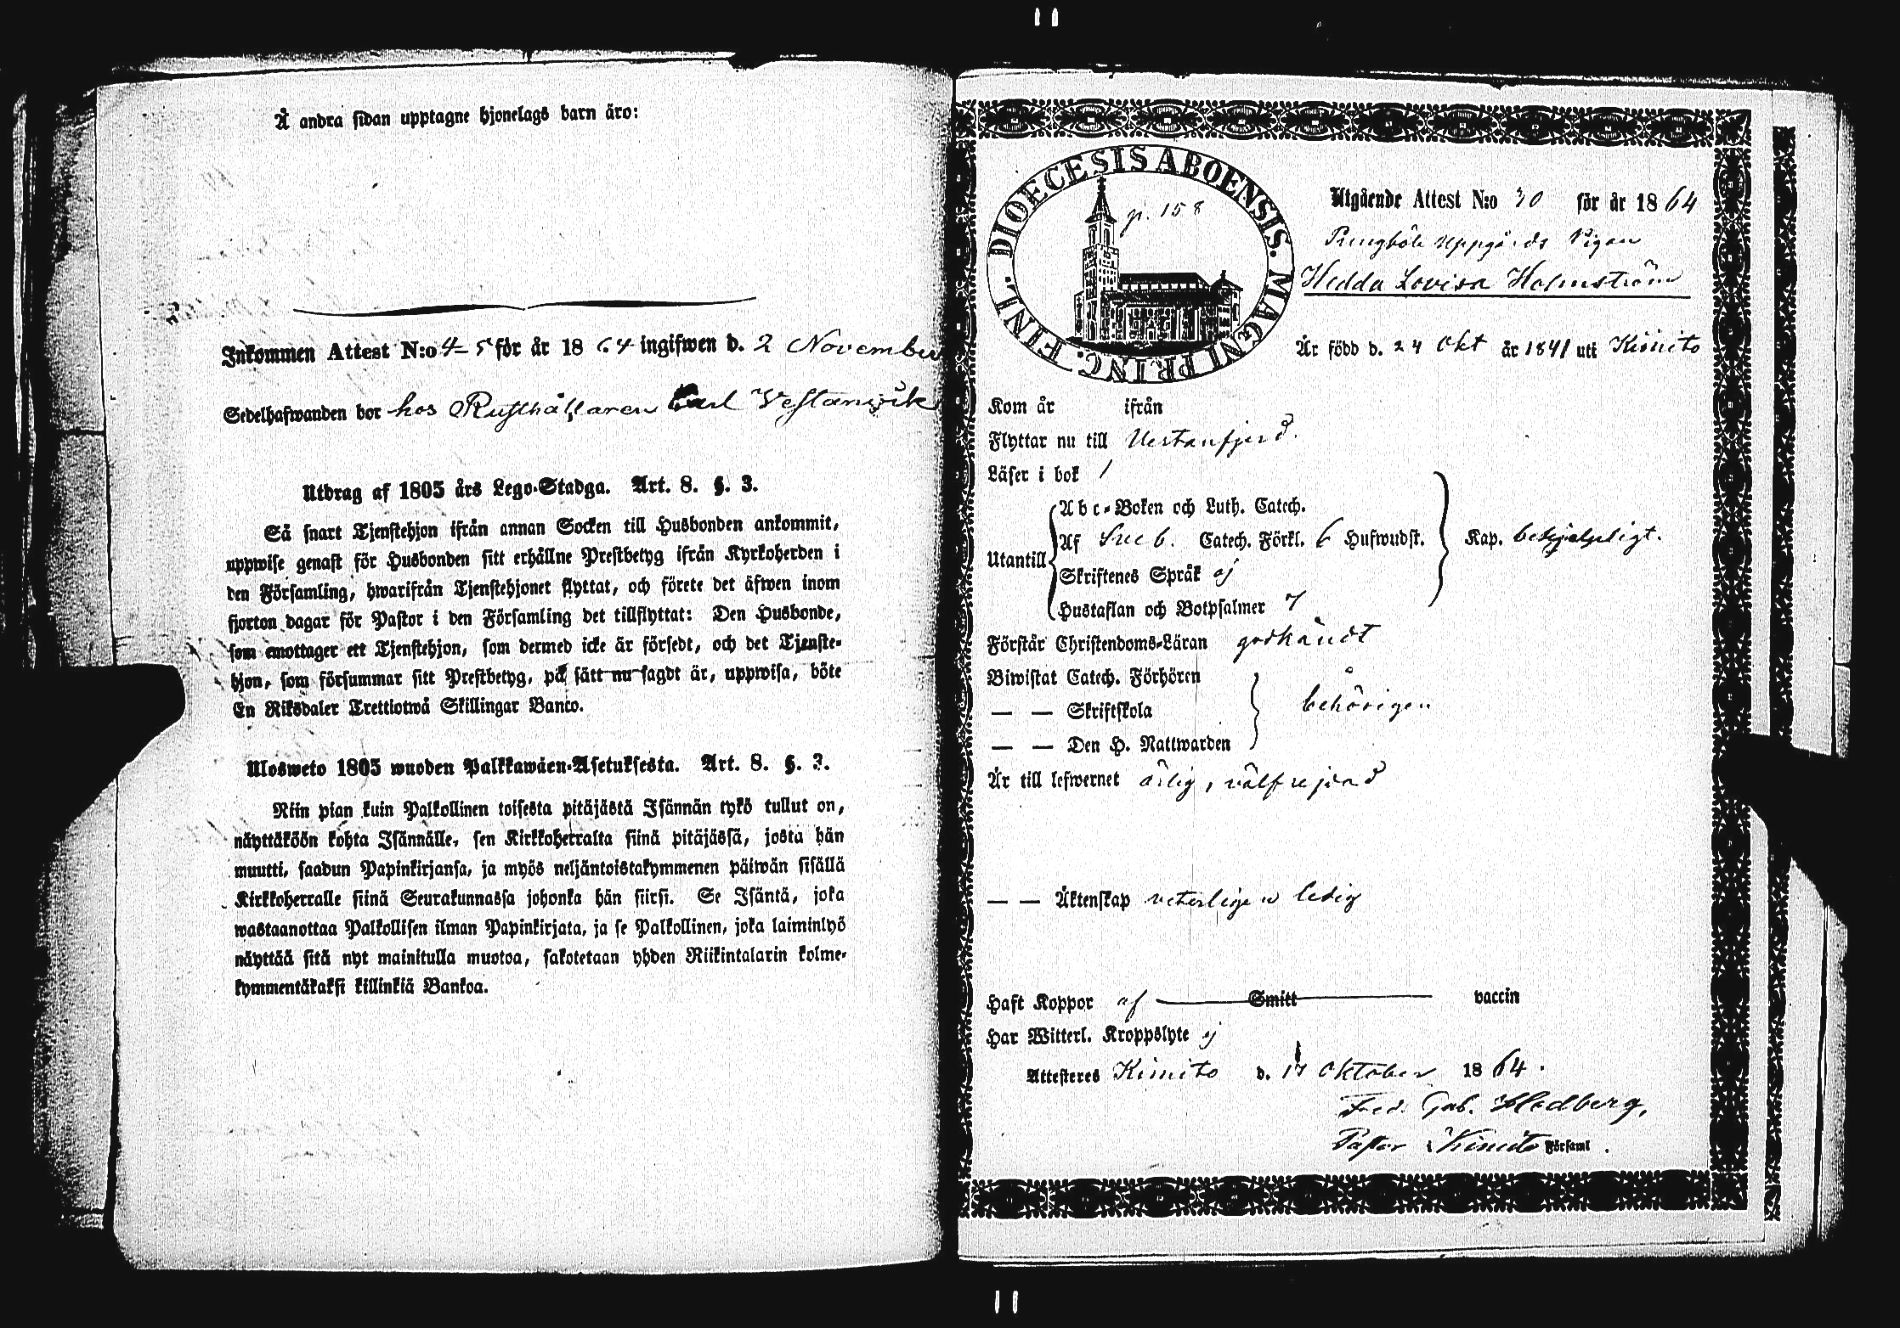 Å andra sidan upptagne hjonelags barn äro:
Inkommen Attest N:o 45 för år 1864 ingifwen d. 2 November
Sedelhafwanden bor hos Rusthållaren Carl Vestanvik
Utdrag af 1805 års Lego-Stadga. Art. 8. §. 3.
Så snart Tjenstehjon ifrån annan Socken till Husbonden ankommit,
uppwise genast för Husbonden sitt erhållne Prestbetyg ifrån Kyrkoherden i
den Församling, hwarifrån Tjenstehjonet flyttat, och förete det äfwen inom
fjorton dagar för Pastor i den Församling det tillflyttat: Den Husbonde,
som emottager ett Tjenstehjon, som dermed icke är försedt, och det Tjenste-
hjon, som försummar sitt Prestbetyg, på sätt nu sagdt är, uppwisa, böte
En Riksdaler Trettiotwå Skillingar Banco.
Ulosweto 1805 wuoden Palkkawäen-Asetuksesta. Art. 8. §. 3.
Niin pian kuin Palkollinen toisesta pitäjästä Isännän tykö tullut on,
näyttäköön kohta Isännälle, sen Kirkkoherralta siinä pitäjässä, josta hän
muutti, saadun Papinkirjansa, ja myös neljäntoistakymmenen päiwän sisällä
Kirkkoherralle siinä Seurakunnassa johonka hän siirsi. Se Isäntä, joka
wastaanottaa Palkollisen ilman Papinkirjata, ja se Palkollinen, joka laiminlyö
näyttää sitä nyt mainitulla muotoa, sakotetaan yhden Riikintalarin kolme-
kymmentäkaksi killinkiä Bankoa.
FINL. DIOECESIS ABOENSIS. MAGNI PRINC.
p. 158
Utgående Attest N:o 30 för år 1864
Uppgårds Pigan
Hedda Lovisa Holmström
Är född d. 24 Okt år 1841 uti Kimito
Kom år ifrån
Flyttar nu till Vestanfjerd.
Läser i bok 1
Utantill
Abc-Boken och Luth. Catech.
Af Sve b. Catech. Förkl. 6 Hufwudst.
Skriftenes Språk ej
Hustaflan och Botpsalmer 7
Kap. behjelpeligt.
Förstår Christendoms-Läran godkändt
Biwistat Catech. Förhören
— — Skriftskola
— — Den H. Nattwarden
behörigen
Är till lefwernet ärlig, välfrejdad
— — Äktenskap veterligen ledig
Haft Koppor af Smitt vaccin
Har Witterl. Kroppslyte ej
Attesteras Kimito d. 17 Oktober 1864.
Fred. Gab. Hedberg,
Pastor i Kimito Församl.